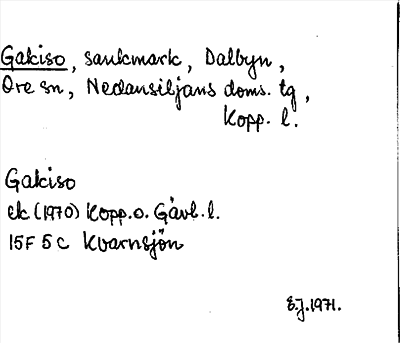 Gakiso, sankmark, Dalbyn,
Ore sn, Nedansiljans doms. tg,
Kopp. l.
Gakiso
ek (1970) Kopp. o. Gävl. l.
15F 5c Kvarnsjön
E.J. 1971.